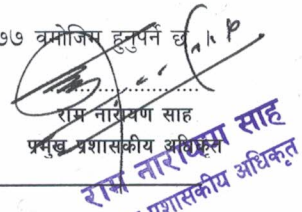 ७७ बमोजिम हुनुपर्ने छ
....................
राम नारायण साह
प्रमुख प्रशासकीय अधिकृत
राम नारायण साह
प्रशासकीय अधिकृत